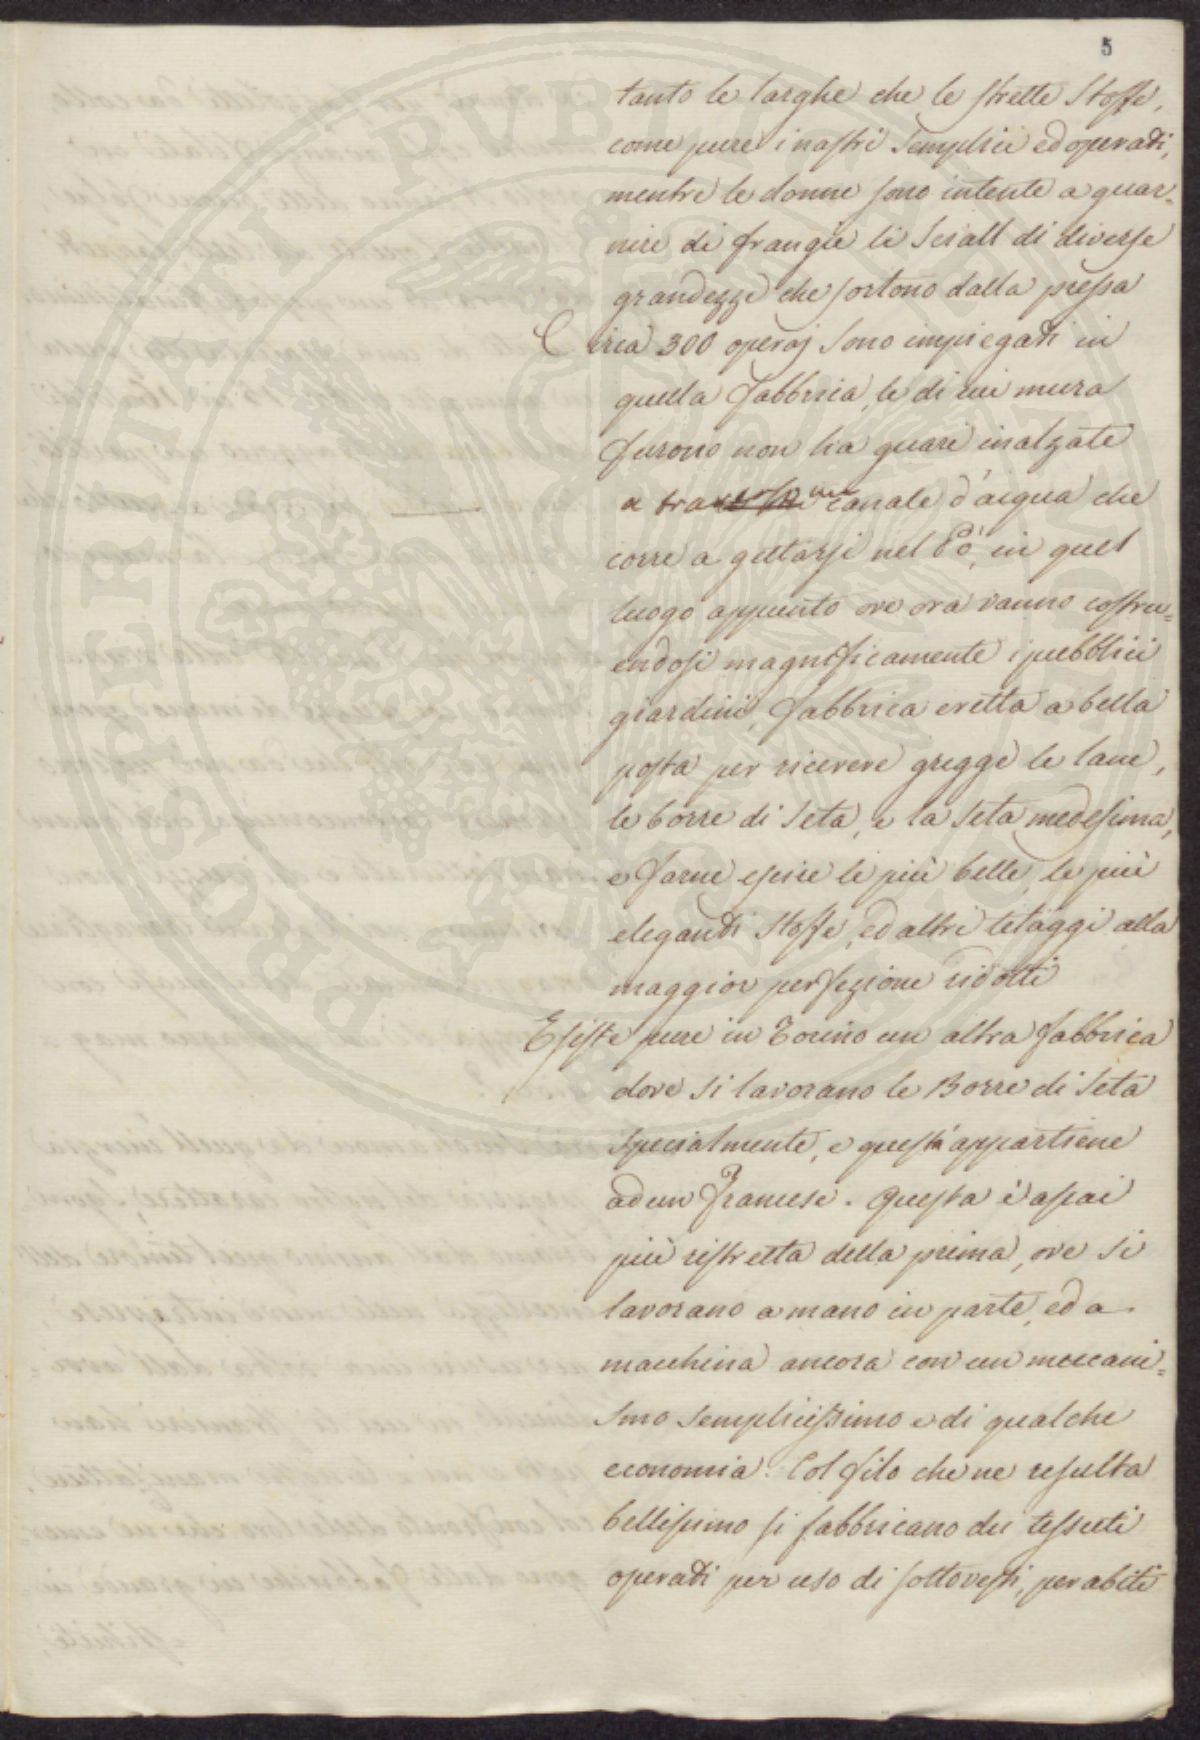 5
tanto le larghe che le strette Stoffe,
come pure i nastri semplici ed operati,
mentre le donne sono intente a guar=
nire di frangie li Sciall di diverse
grandezze che sortono dalla pressa
Circa 300 operaj sono impiegati in
quella fabbrica, le di cui mura
furono non ha guari inalzate
a tra un canale d'acqua che
corre a gettarsi nel Pò, in quel
luogo appunto ove ora vanno costru=
endosi magnificamente i pubblici
giardini, fabbrica eretta a bella
posta per ricevere gregge le lane,
le borre di Seta, e la Seta medesima,
e farne escire le più belle, le più
eleganti Stoffe, ed altri telaggi alla
maggior perfezione ridotti
Esiste pure in Torino un altra fabbrica
dove si lavorano le Borre di Seta
specialmente, e questa appartiene
ad un Francese. Questa è assai
più ristretta della prima, ove si
lavorano a mano in parte, ed a
macchina ancora con un meccani=
smo semplicissimo e di qualche
economia. Col filo che ne resulta
bellissimo si fabbricano dei tessuti
operati per uso di sottovesti, per abiti
PROSPERITATI PUBLICAE